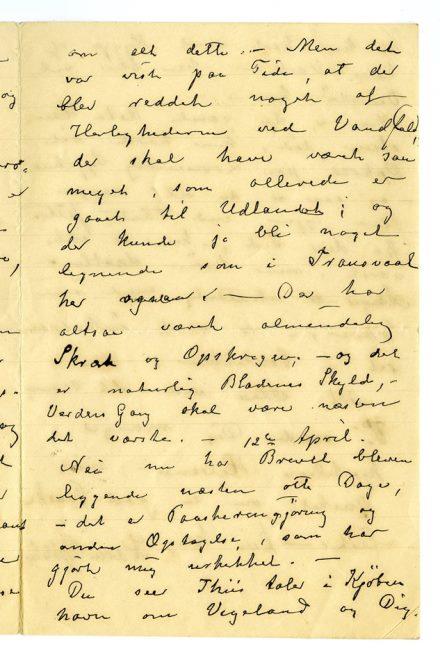 om alt dette. – Men det
var visst paa Tide, at der
blev reddet noget af
Herlighederne ved Vandfald,
der skal have været saa
meget, som allerede er
gaaet til Udlandet; og
der kunde jo bli noget
lignende som i Transvaal
her ogsaa. – Der har
altsaa været almindelig
Skræk og Opskragen, – og det
er naturlig Bladenes Skyld, –
Verdens Gang skal være næsten
det værste. – 12te April.
Naa nu har Brevet bleven
liggende næsten otte Dage,
– det er Paaskerengjøring og
anden Opstagelse, som har
gjort mig
Du seer Thiis taler i Kjøben
havn om Vigeland og Dig.